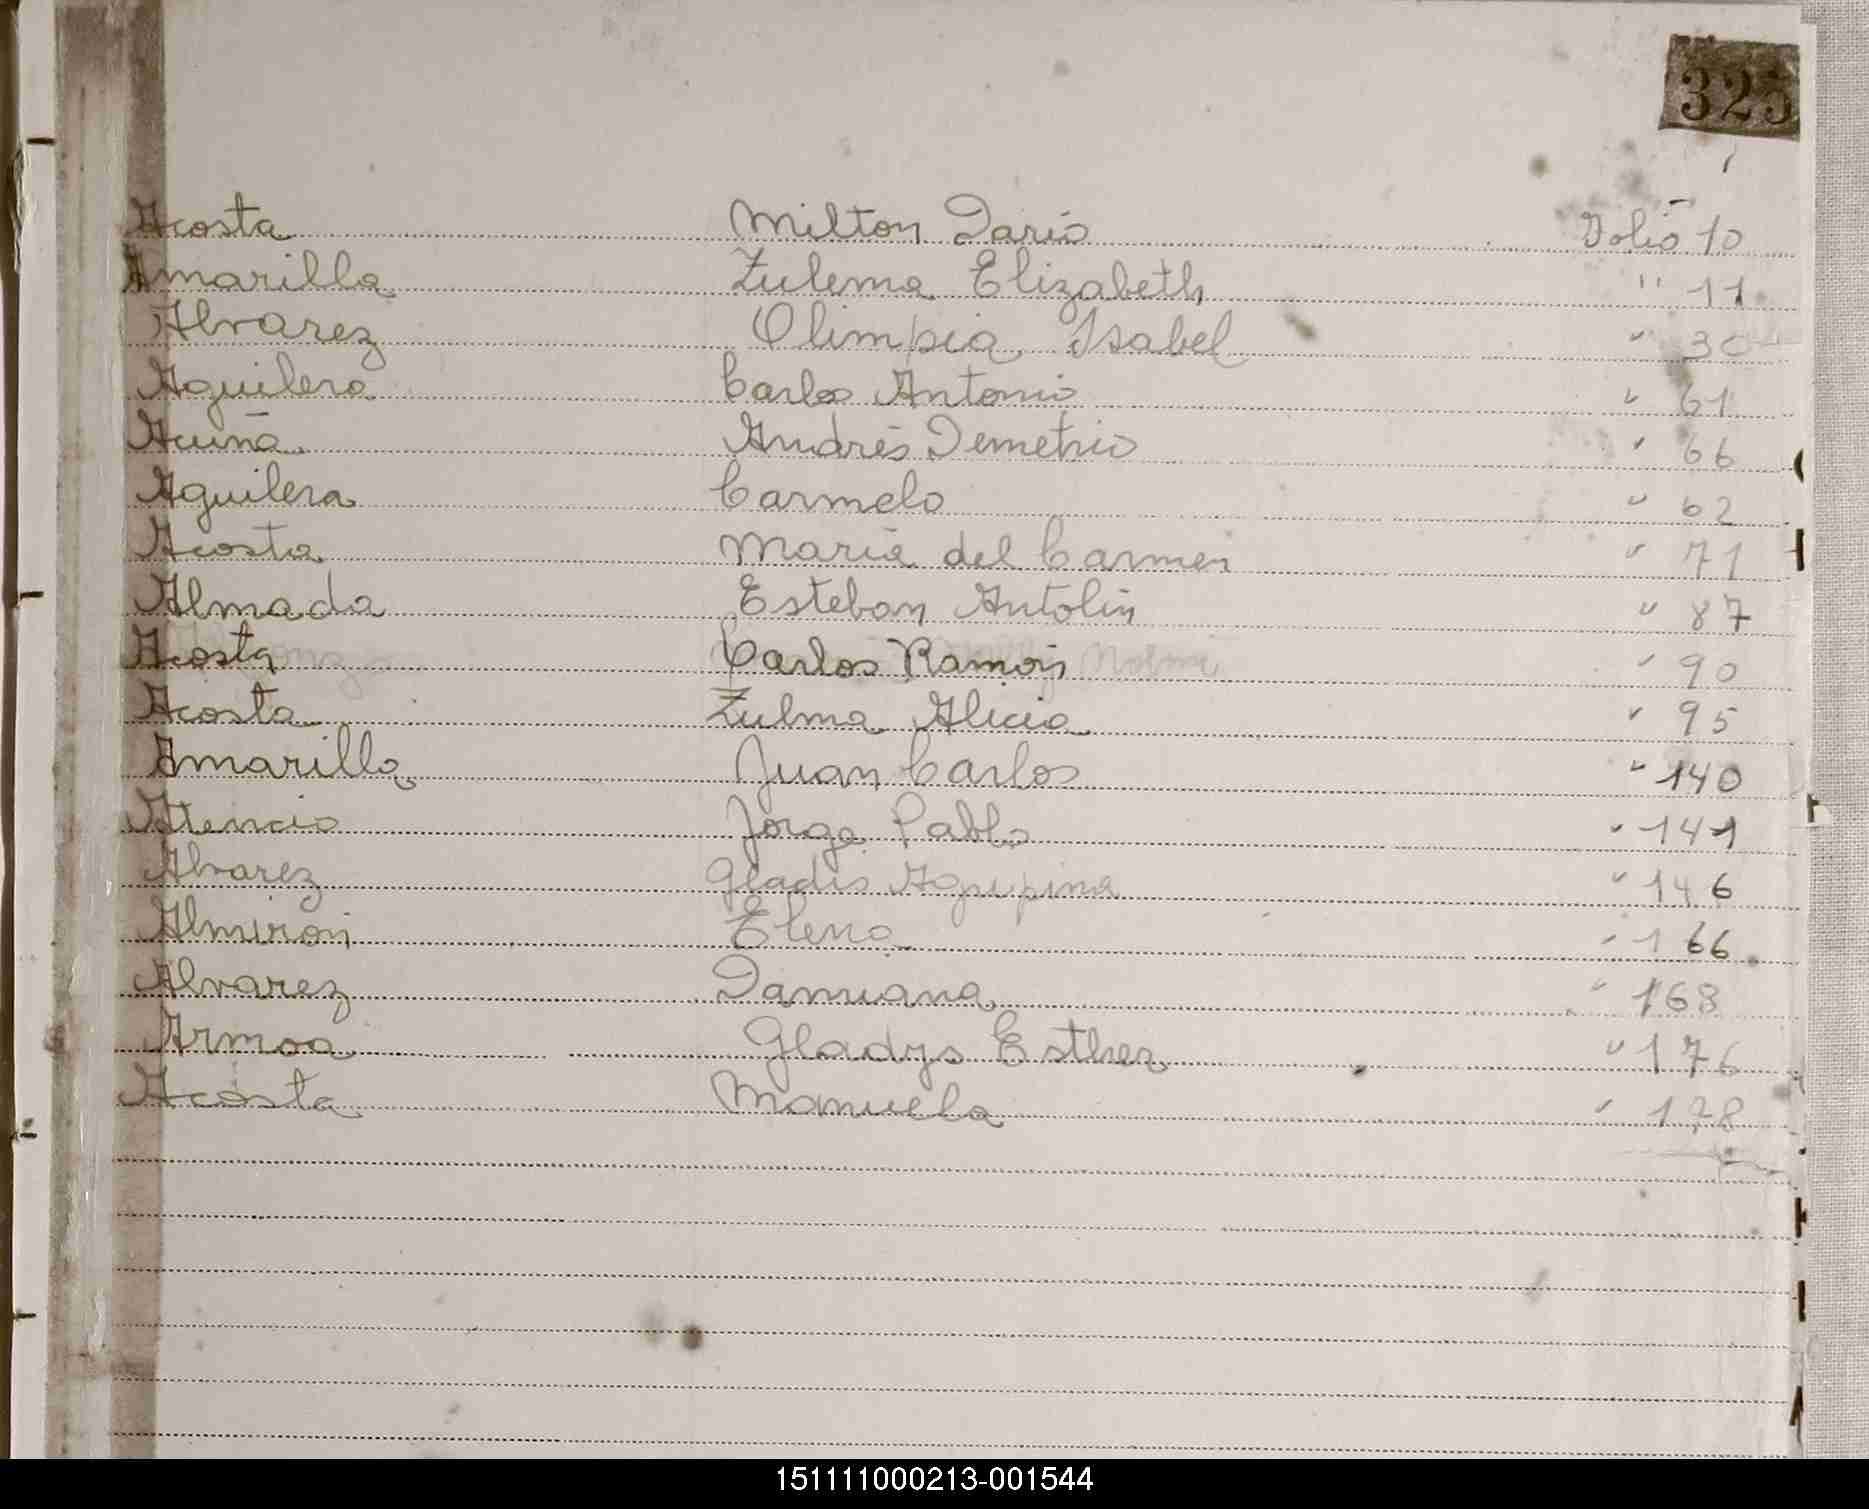 325
Acosta Milton Dario Folio 10
Amarilla Zulema Elizabeth " 11
Alvarez Olimpia Isabel " 30
Aguilera Carlos Antonio " 61
Acuña Andrés Demetrio " 66
Aguilera Carmelo " 62
Acosta Maria del Carmen " 71
Almada Esteban Antolin " 87
Acosta Carlos Ramón " 90
Acosta Zulma Alicia " 95
Amarilla Juan Carlos " 140
Atencio Jorge Pablo " 141
Alvarez Gladis Agripina " 146
Almiron Elena " 166
Alvarez Damiana " 168
Armoa Gladys Esther " 176
Acosta Manuela " 178
151111000213-001544